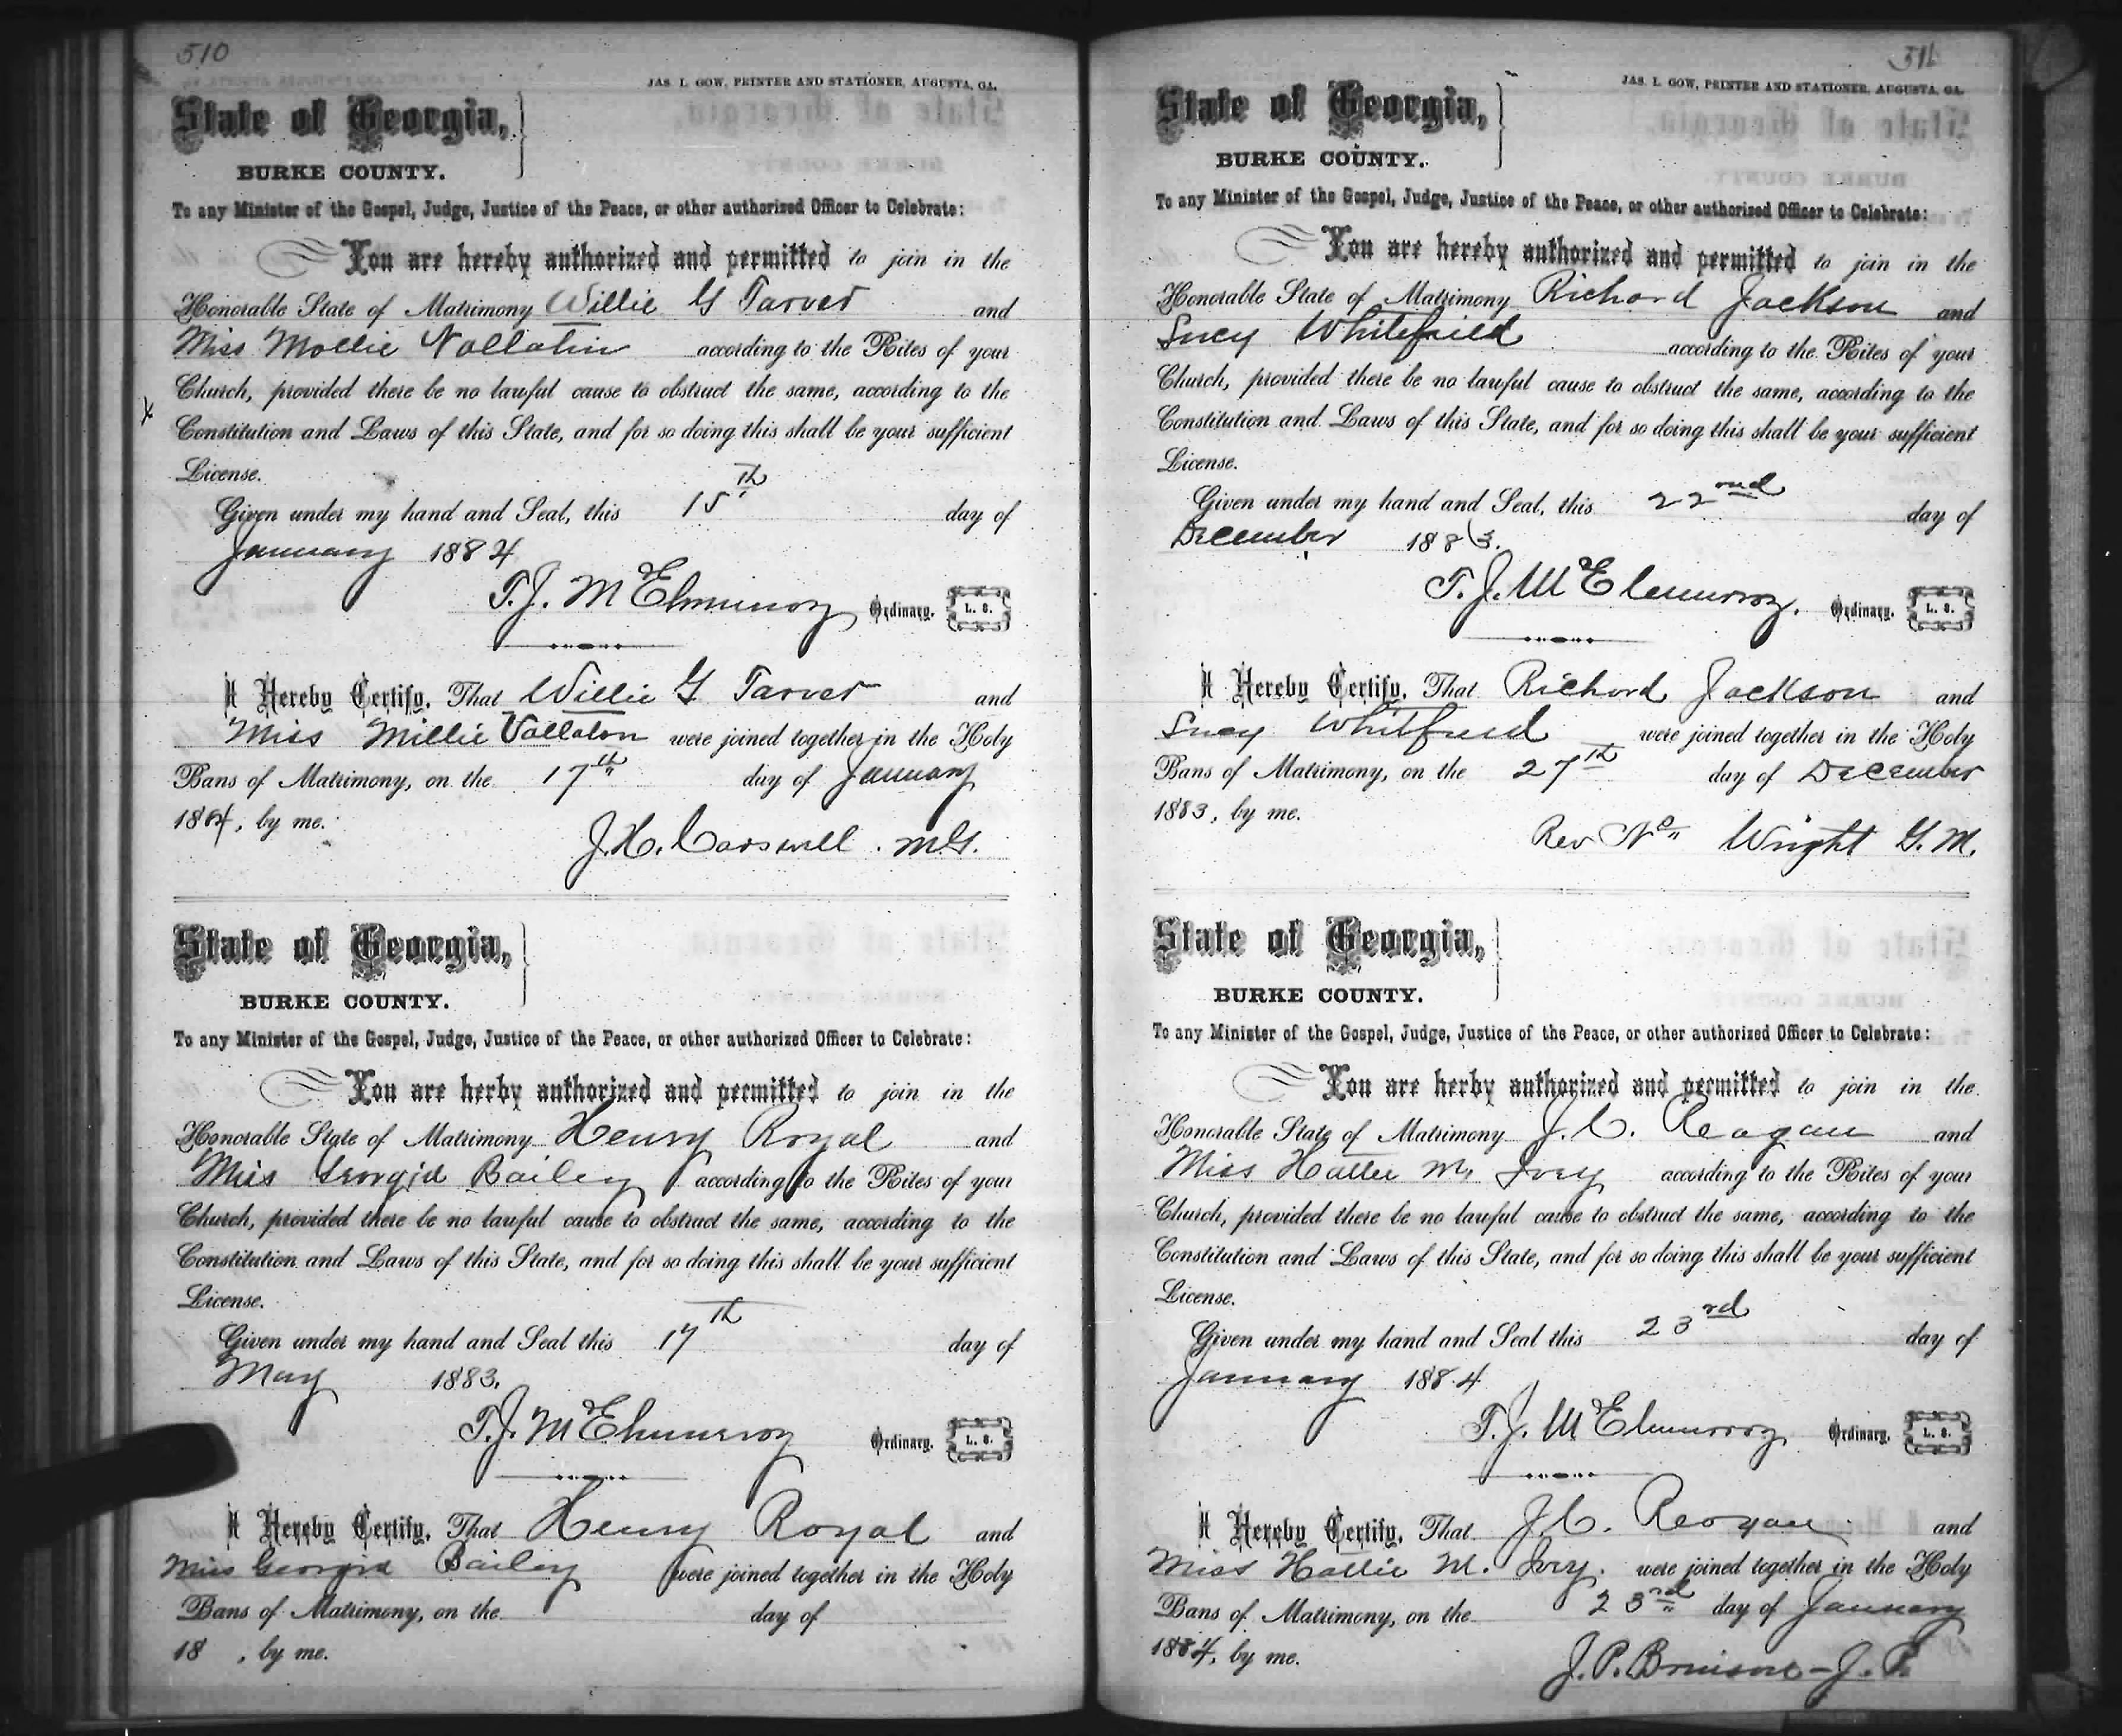 510
JAS. L. GOW, PRINTER AND STATIONER, AUGUSTA, GA.
State of Georgia,
BURKE COUNTY.
To any Minister of the Gospel, Judge, Justice of the Peace, or other authorized Officer to Celebrate:
You are hereby authorized and permitted to join in the
Honorable State of Matrimony Willie G Tarver and
Miss Mollie Vallotin according to the Rites of your
Church, provided there be no lawful cause to obstruct the same, according to the
Constitution and Laws of this State, and for so doing this shall be your sufficient
License.
Given under my hand and Seal, this 15th day of
January 1884
T. J. McElmurray Ordinary. L. S.
I Hereby Certify, That Willie G Tarver and
Miss Millie Vallaton were joined together in the Holy
Bans of Matrimony, on the 17th day of January
1884, by me.
J. H. Carswell. M.G.
State of Georgia,
BURKE COUNTY.
To any Minister of the Gospel, Judge, Justice of the Peace, or other authorized Officer to Celebrate:
You are herby authorized and permitted to join in the
Honorable State of Matrimony Henry Royal and
Miss Georgia Bailey according to the Rites of your
Church, provided there be no lawful cause to obstruct the same, according to the
Constitution and Laws of this State, and for so doing this shall be your sufficient
License.
Given under my hand and Seal this 17th day of
May 1883.
T. J. McElmurray Ordinary. L. S.
I Hereby Certify, That Henry Royal and
Miss Georgia Bailey were joined together in the Holy
Bans of Matrimony, on the day of
18 , by me.
511
JAS. L. GOW, PRINTER AND STATIONER, AUGUSTA, GA.
State of Georgia,
BURKE COUNTY.
To any Minister of the Gospel, Judge, Justice of the Peace, or other authorized Officer to Celebrate:
You are hereby authorized and permitted to join in the
Honorable State of Matrimony Richard Jackson and
Lucy Whitefield according to the Rites of your
Church, provided there be no lawful cause to obstruct the same, according to the
Constitution and Laws of this State, and for so doing this shall be your sufficient
License.
Given under my hand and Seal, this 22nd day of
December 1883.
T. J. McElmurray. Ordinary. L. S.
I Hereby Certify, That Richard Jackson and
Lucy Whitfield were joined together in the Holy
Bans of Matrimony, on the 27th day of December
1883, by me.
Rev No Wright G. M.
State of Georgia,
BURKE COUNTY.
To any Minister of the Gospel, Judge, Justice of the Peace, or other authorized Officer to Celebrate:
You are herby authorized and permitted to join in the
Honorable State of Matrimony J. C. Reagan and
Miss Hattie M. Ivey according to the Rites of your
Church, provided there be no lawful cause to obstruct the same, according to the
Constitution and Laws of this State, and for so doing this shall be your sufficient
License.
Given under my hand and Seal this 23rd day of
January 1884
T. J. McElmurray Ordinary. L. S.
I Hereby Certify, That J. C. Reagan and
Miss Hattie M. Ivey. were joined together in the Holy
Bans of Matrimony, on the 23rd day of January
1884, by me.
J. P. Brinson - J. P.